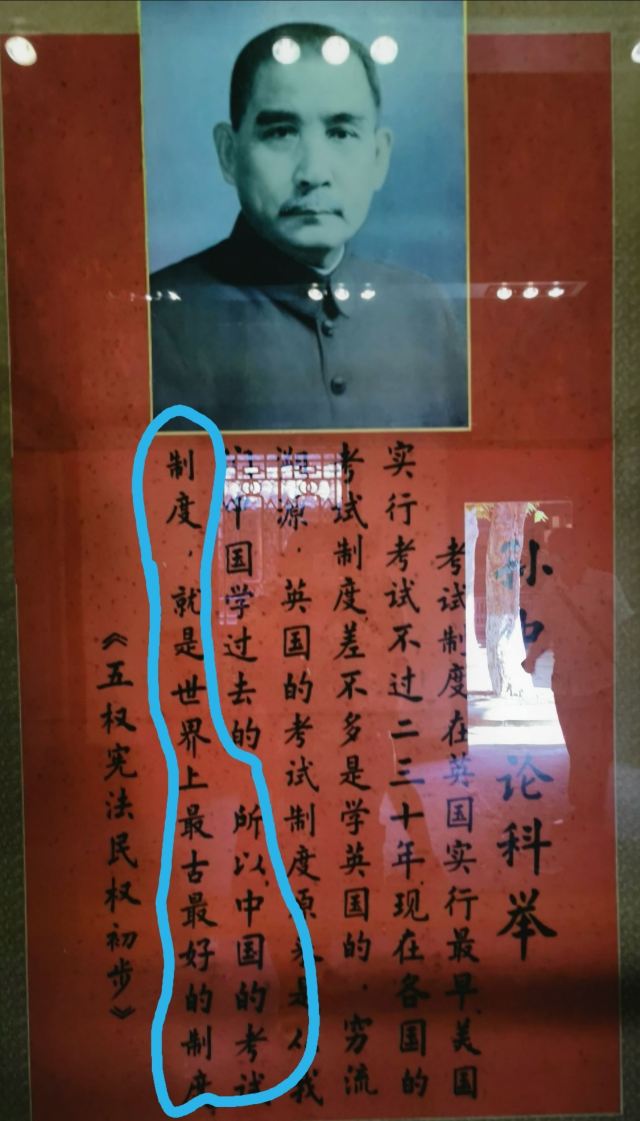 孙中论科举
考试制度在英国实行最早,美国
实行考试不过二三十年,现在各国的
考试制度差不多是学英国的.穷流
溯源.英国的考试制度原来是从我
们中国学过去的 所以,中国的考试
制度,就是世界上最古最好的制度
《五权宪法民权初步》